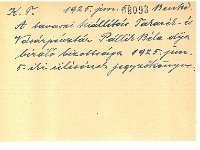 K. T. 1925. jun. 18093 Benkő.
A tavaszi kiállítás Takarék- és
Vásárpénztár Pállik Béla díja
biráló bizottsága 1925. jun.
5.-iki ülésének jegyzőkönyve.